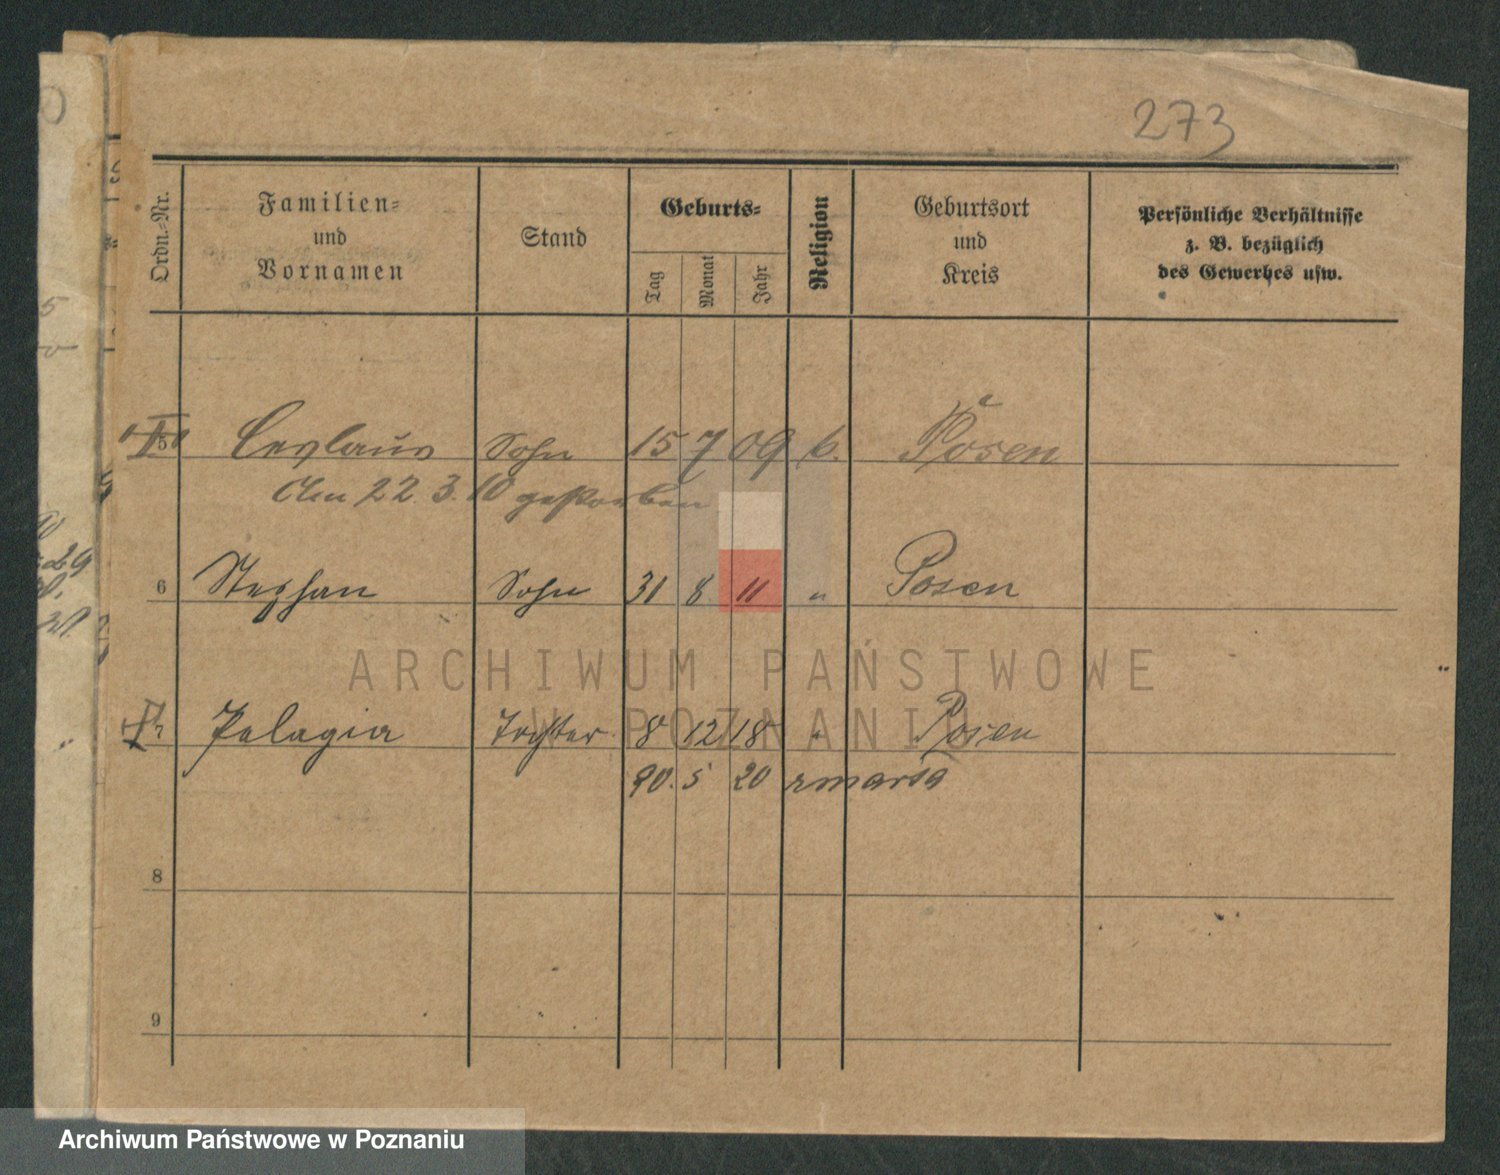 273
Ordn.-Nr.
Familien-
und
Vornamen
Stand
Geburts-
Tag
Monat
Jahr
Religion
Geburtsort
und
Kreis
Persönliche Verhältnisse
z. B. bezüglich
des Gewerbes usw.
5 Ceslaus Sohn 15 7 09 k. Posen
Am 22. 3. 10 gestorben
6 Stephan Sohn 31 8 11 " Posen
7 Pelagia Tochter 8 12 18 " Posen
5 20 zmarła
8
9
ARCHIWUM PAŃSTWOWE
W POZNANIU
Archiwum Państwowe w Poznaniu